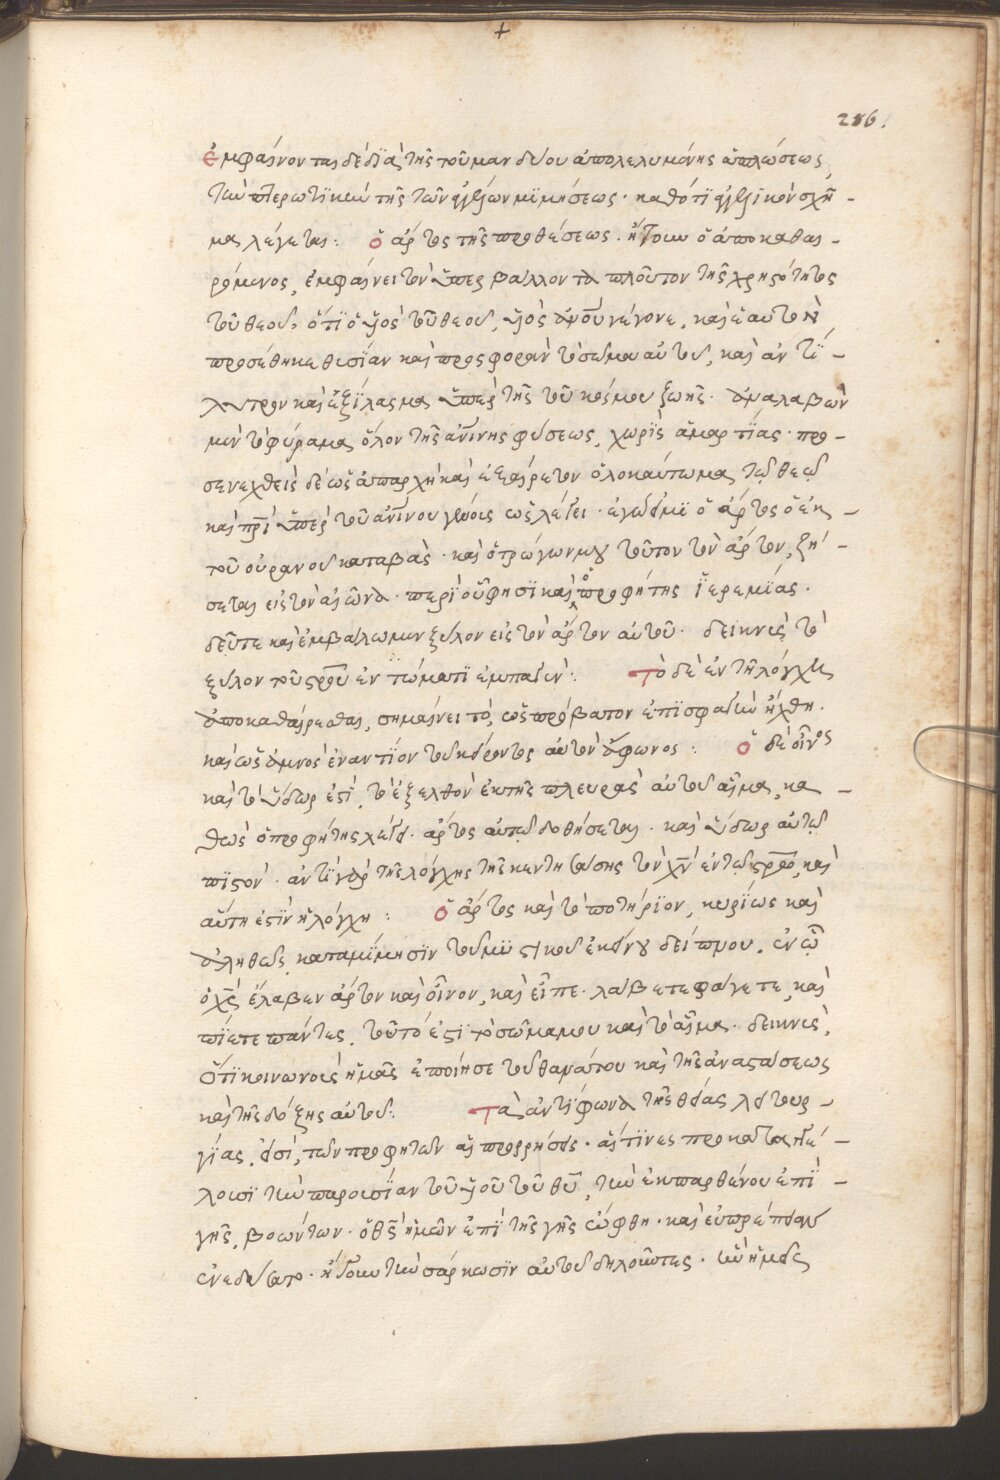 +
286.
ἐμφαίνονται δὲ διὰ τῆς τοῦ μανδύου ἀπολελυμένης ἁπλώσεως,
τὴν πτερωτικὴν τῆς τῶν ἀγγέλων μιμήσεως· καθότι ἀγγελικὸν σχῆ-
μα λέγεται: ὁ ἄρτος τῆς προθέσεως. ἤγουν ὁ ἀποκαθαι-
ρόμενος, ἐμφαίνει τὸν ὑπερβάλλοντα πλοῦτον τῆς χρηστότητος
τοῦ θεοῦ, ὅτι ὁ υἱὸς τοῦ θεοῦ, υἱὸς ἀνου γέγονε, καὶ ἑαυτὸν
προσέθηκε θυσίαν καὶ προσφορὰν τὸ σῶμα αὐτοῦ, καὶ ἀντί-
λυτρον καὶ ἐξίλασμα ὑπὲρ τῆς τοῦ κόσμου ζωῆς. ἀναλαβὼν
μὲν τὸ φύραμα ὅλον τῆς ἀνίνης φύσεως, χωρὶς ἁμαρτίας· προ-
σενεχθεὶς δὲ ὡς ἀπαρχὴ καὶ ἐξαίρετον ὁλοκαύτωμα τῷ θεῷ
καὶ πρὶ ὑπὲρ τοῦ ἀνίνου γένους ὡς λέγει· ἐγώ εἰμι ὁ ἄρτος ὁ ἐκ-
τοῦ οὐρανοῦ καταβὰς· καὶ ὁ τρώγων μου τοῦτον τὸν ἄρτον, ζή-
σεται εἰς τὸν αἰῶνα· περὶ οὗ φησὶ καὶ ὁ προφήτης ἱερεμίας·
δεῦτε καὶ ἐμβάλωμεν ξύλον εἰς τὸν ἄρτον αὐτοῦ· δεικνὺς τὸ
ξύλον τοῦ σροῦ ἐν τῷ σώματι ἐμπαγέν: τὸ δὲ ἐν τῇ λόγχῃ
ἀποκαθαίρεσθαι, σημαίνει τό, ὡς πρόβατον ἐπὶ σφαγὴν ἤχθη.
καὶ ὡς ἀμνὸς ἐναντίον τοῦ κείροντος αὐτὸν ἄφωνος: ὁ δὲ οἶνος
καὶ τὸ ὕδωρ ἐστὶ, τὸ ἐξελθὸν ἐκ τῆς πλευρᾶς αὐτοῦ αἷμα, κα-
θὼς ὁ προφήτης λέγει· ἄρτος αὐτῷ δοθήσεται. καὶ ὕδωρ αὐτῷ
πιστόν· ἀντὶ γὰρ τῆς λόγχης τῆς κεντησάσης τὸν χν ἐν τῷ σρω, καὶ
αὕτη ἐστὶν ἡ λόγχη: ὁ ἄρτος καὶ τὸ ποτήριον, κυρίως καὶ
ἀληθῶς, κατα μίμησιν τοῦ μυστικοῦ ἐκείνου δείπνου. ἐν ᾧ
ὁ χς ἔλαβεν ἄρτον καὶ οἶνον, καὶ εἶπε· λάβετε φάγετε, καὶ
πίετε πάντες. τοῦτό ἐστι τὸ σῶμα μου καὶ τὸ αἷμα· δεικνὺς,
ὅτι κοινωνοὺς ἡμᾶς ἐποίησε τοῦ θανάτου καὶ τῆς ἀναστάσεως
καὶ τῆς δόξης αὐτοῦ: τὰ ἀντίφωνα τῆς θείας λειτουρ-
γίας, εἰσὶ, τῶν προφητῶν αἱ προρρήσεις· αἵτινες προκατήγγει-
λουσι τὴν παρουσίαν τοῦ υἱοῦ τοῦ θυ, τὴν ἐκ παρθένου ἐπὶ-
γῆς, βοώντων· ὁ θς ἡμῶν ἐπὶ τῆς γῆς ὤφθη· καὶ εὐπρέπειαν
ἐνεδύσατο· ἤγουν τὴν σάρκωσιν αὐτοῦ δηλοῦντες· ἣν ἡμεῖς